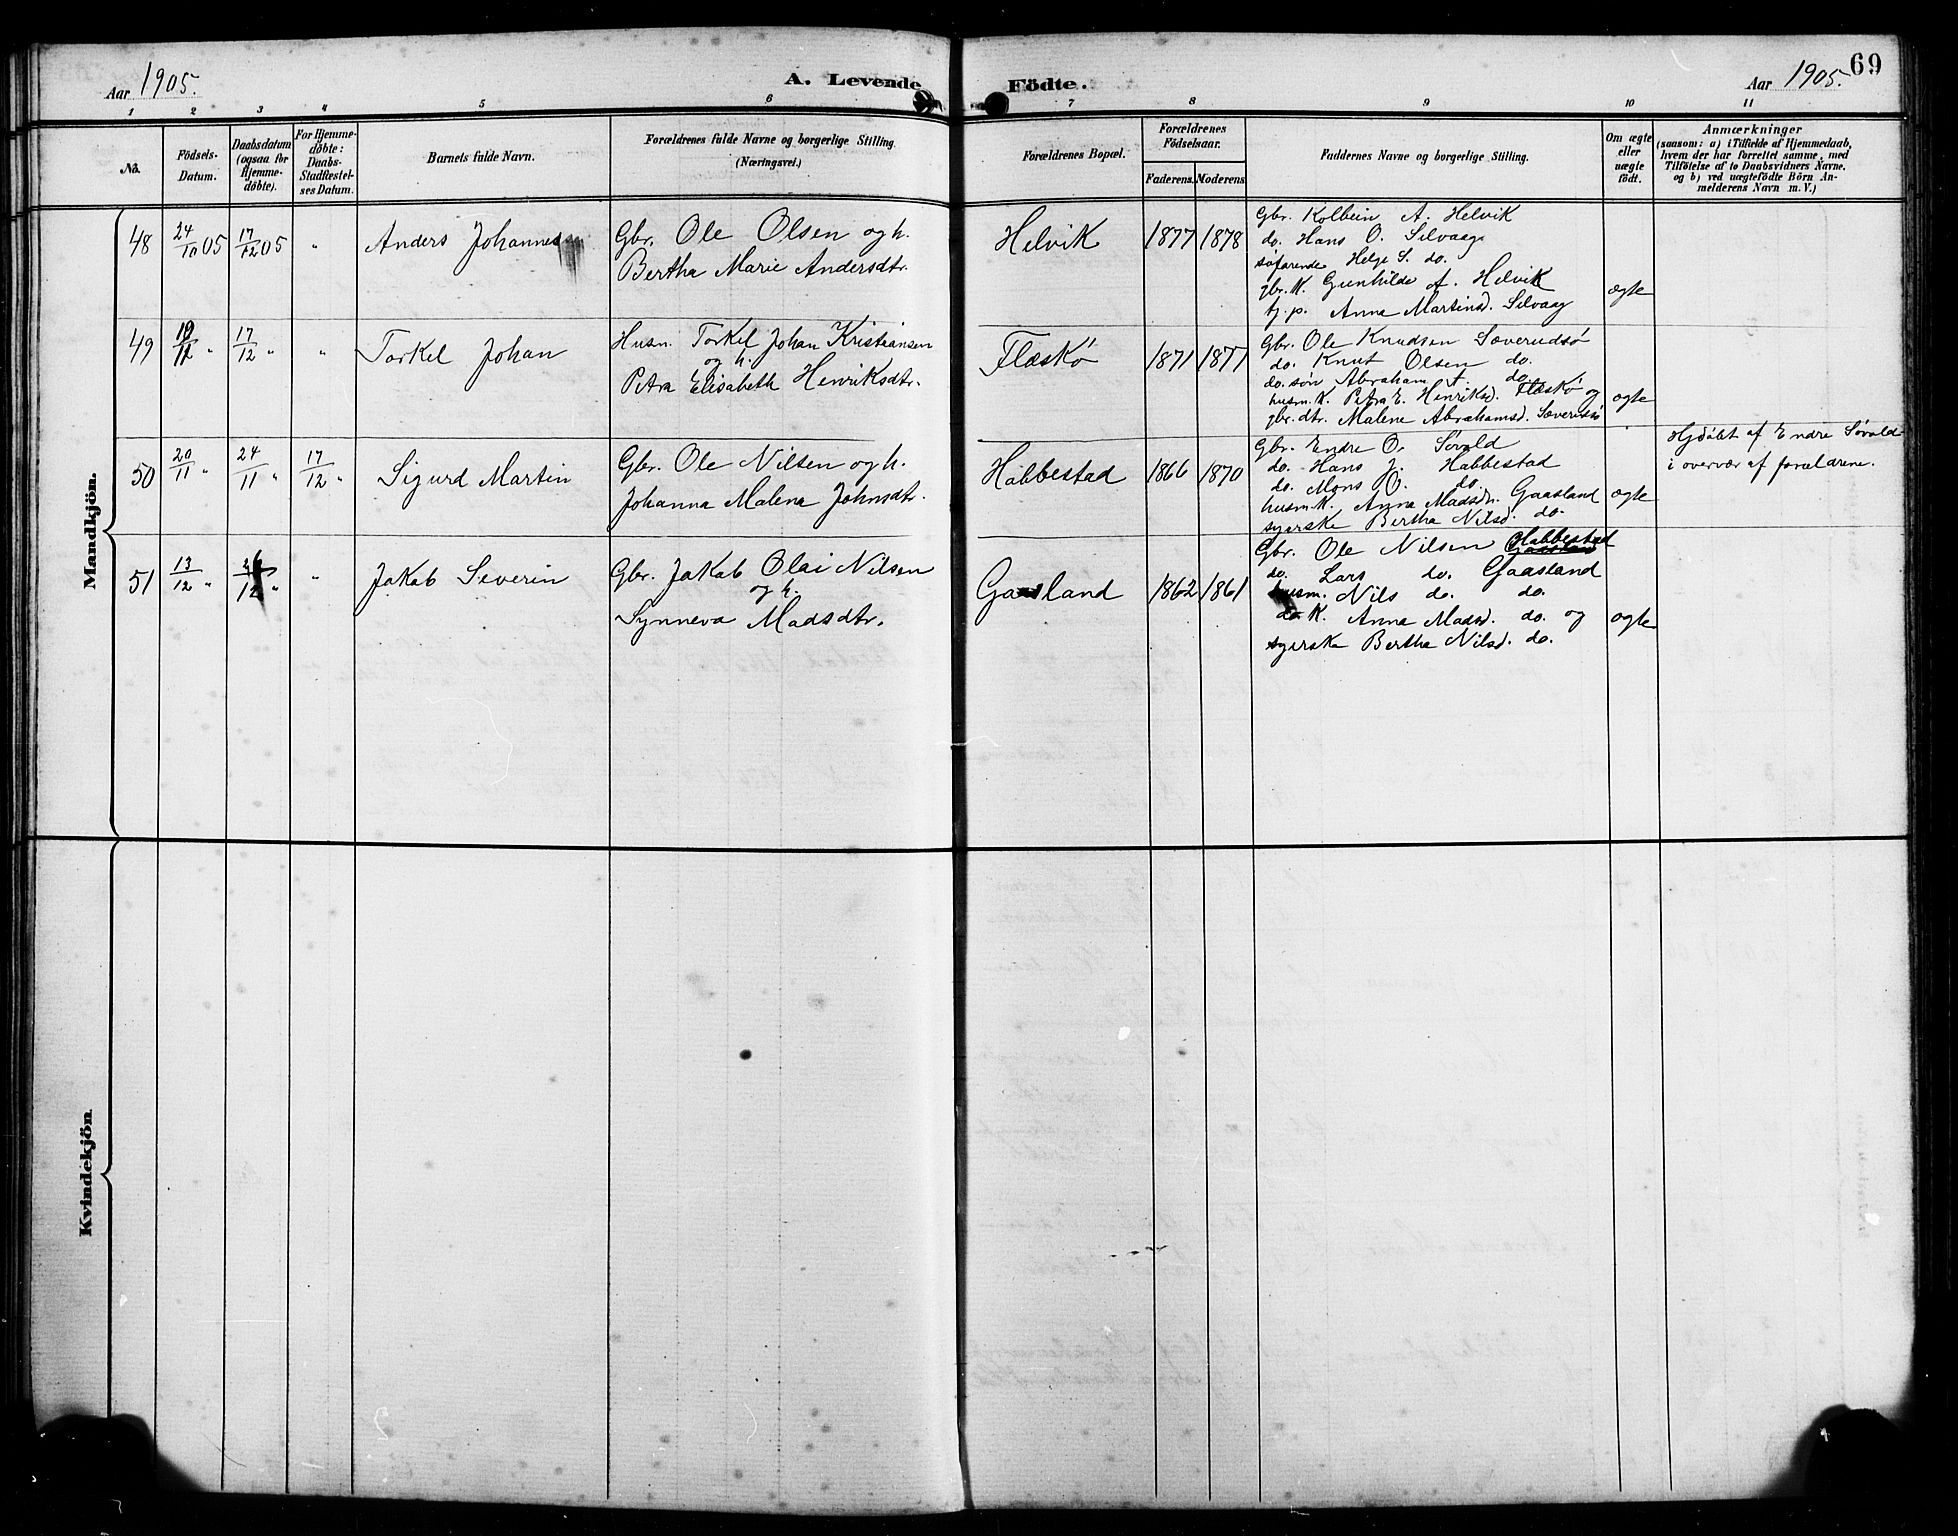 Aar 1905.
A. Levende Födte.
Aar 1905.
69
1 2 3 4 5 6 7 8 9 10 11
No.
Födsels-
Datum.
Daabsdatum
(ogsaa for
Hjemme-
döbte).
For Hjemme-
döbte:
Daabs-
Stadfæstel-
ses Datum.
Barnets fulde Navn.
Forældrenes fulde Navne og borgerlige Stilling
(Næringsvei.)
Forældrenes Bopæl.
Forældrenes
Födselsaar.
Faderens. Moderens
Faddernes Navne og borgerlige Stilling.
Om ægte
eller
uægte
födt.
Anmærkninger
(saasom: a) i Tilfælde af Hjemmedaab,
hvem der har forrettet samme, med
Tilföielse af to Daabsvidners Navne,
og b) ved uægtefödte Börn An-
melderens Navn m. V.)
Mandkjön.
48 24/10 05 17/12 05 " Anders Johannes
Gbr. Ole Olsen og h.
Bertha Marie Andersdtr.
Helvik 1877 1878
Gbr. Kolbein A. Helvik
do. Hans O. Selvaag
søfarende Helge S. do.
gbr. K. Gunhilde A. Helvik
tj. p. Anna Martinsd. Selvaag
ægte
49 " 17/12 " " Torkel Johan
Husm. Torkel Johan Kristiansen
og h.
Petra Elisabeth Henriksdtr.
Flæskø 1871 1877
Gbr. Ole Knudsen Sæverudsø
do. Knut Olsen do.
do. søn Abraham A. do.
husm. K. Petra E. Henriksd. Flæskø og
gbr. dtr. Malene Abrahamsd. Sæverudsø
ægte
50 20/11 " 24/11 " 17/12 " Sigurd Martin
Gbr. Ole Nilsen og h.
Johanna Malena Johnsdtr.
Habbestad 1866 1870
Gbr. Endre O. Søvold
do. Hans J. Habbestad
do. Mons O. do.
husm. K. Anna Madsdtr. Gaasland
syerske Bertha Nilsd. do.
ægte
Hjdøbt af Endre Søvold
i overvær af forældrene.
51 13/12 " 26/12 " " Jakob Severin
Gbr. Jakob Olai Nilsen
og h.
Synneva Madsdtr.
Gaasland 1862 1861
Gbr. Ole Nilsen Habbestad
do. Lars do. Gaasland
husm. Nils do. do.
do K. Anna Madsd. do. og
syerske Bertha Nilsd. do.
ægte
Kvindekjön